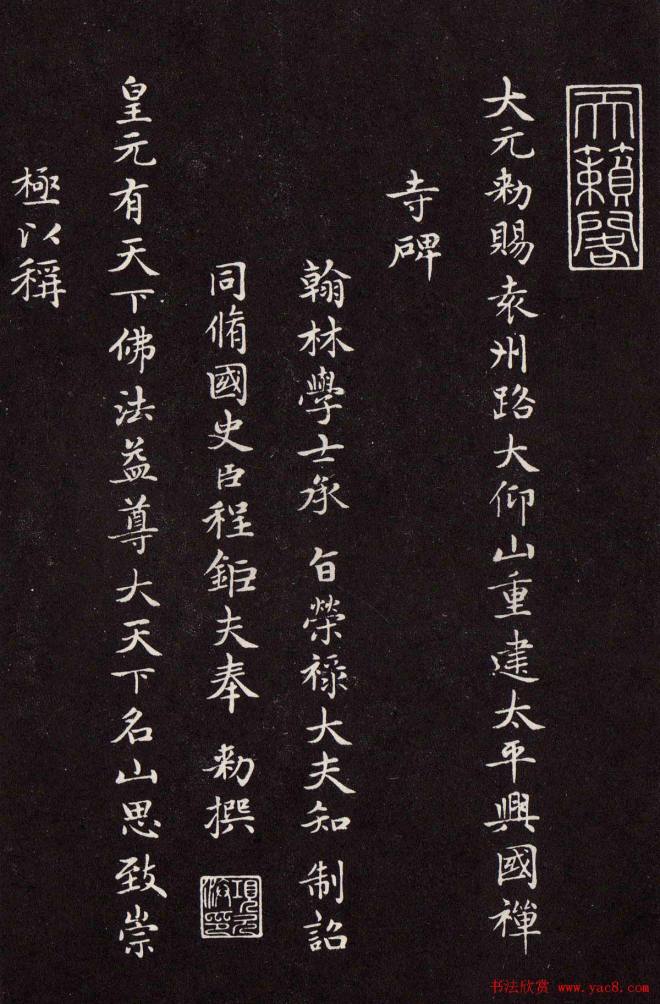 天籟閣
大元勅賜袁州路大仰山重建太平興國禪
寺碑
翰林學士承旨榮祿大夫知制詔
同脩國史臣程鉅夫奉勅撰
項元汴印
皇元有天下佛法益尊大天下名山思致崇
極以稱
书法欣赏 www.yac8.com